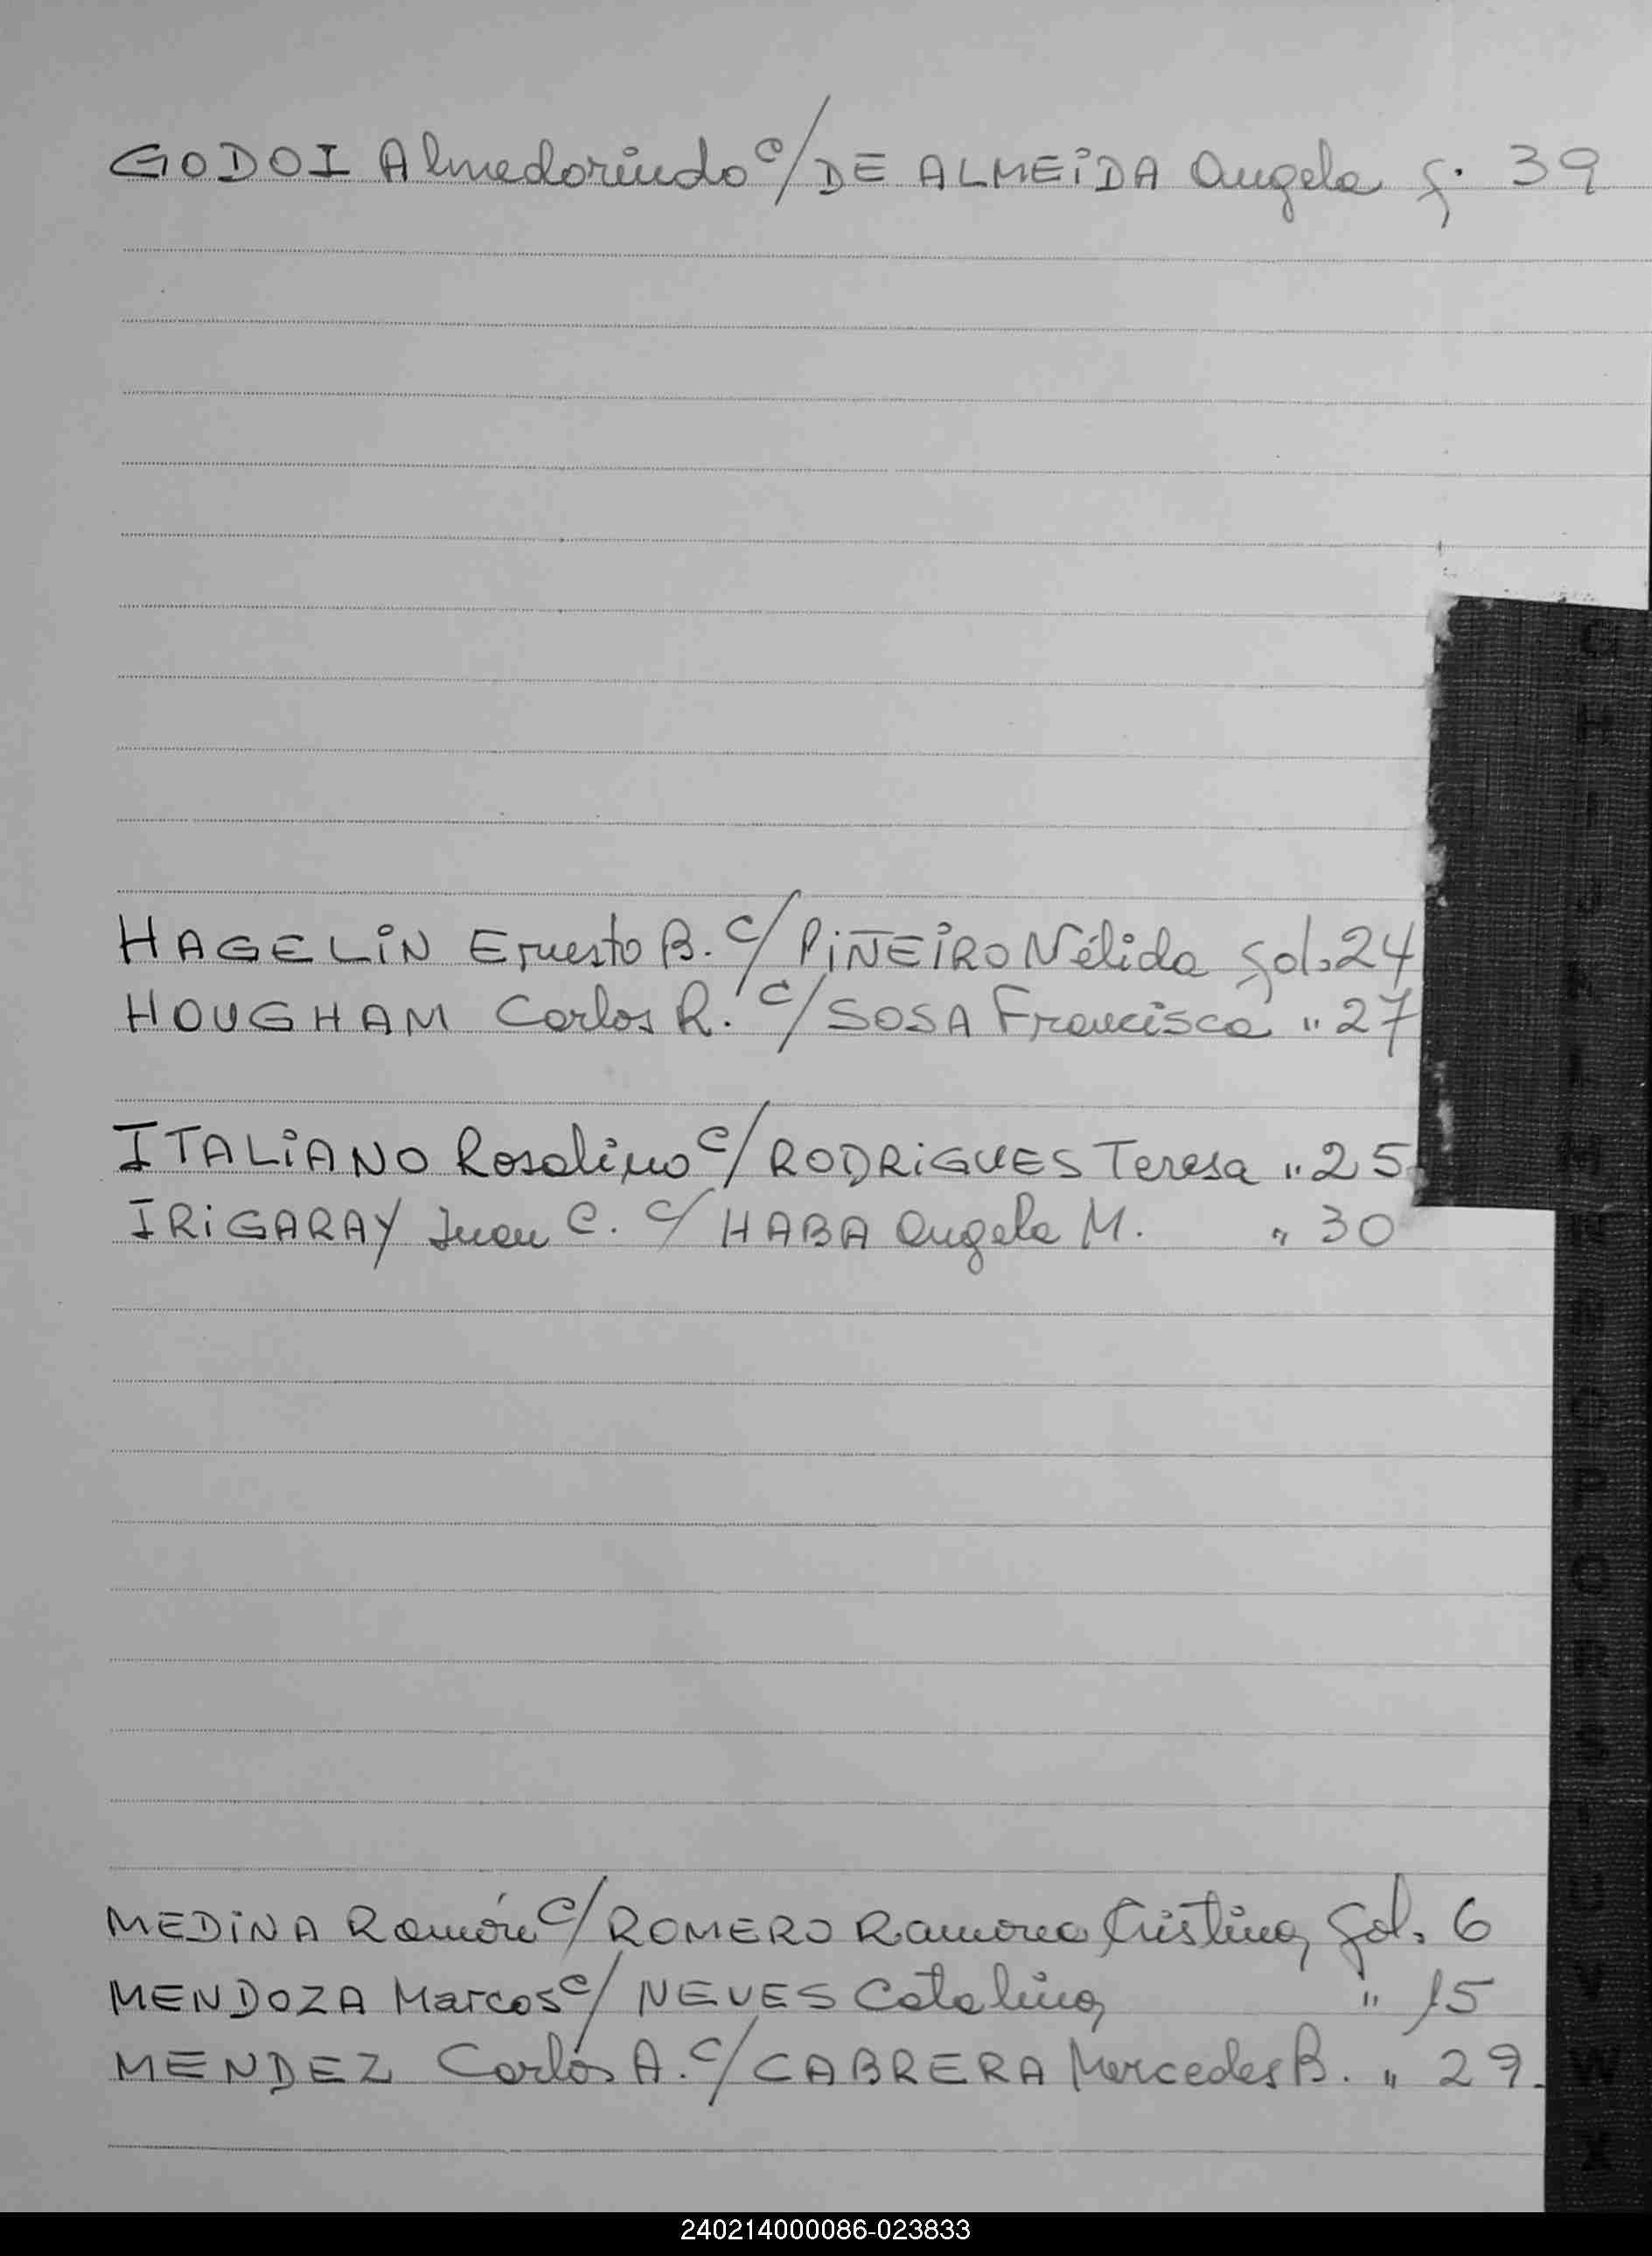 GODOI Almedorindo c/ DE ALMEIDA Angela f. 39
HAGELIN Ernesto B. c/ PIÑEIRO Nélida fol. 24
HOUGHAM Carlos R. c/ SOSA Francisca " 27
ITALIANO Rosalino c/ RODRIGUES Teresa " 25
IRIGARAY Juan C. c/ HABA Angela M. " 30
MEDINA Ramón c/ ROMERO Ramona Cristina fol. 6
MENDOZA Marcos c/ NEVES Catalina " 15
MENDEZ Carlos A. c/ CABRERA Mercedes B. " 29.
240214000086-023833